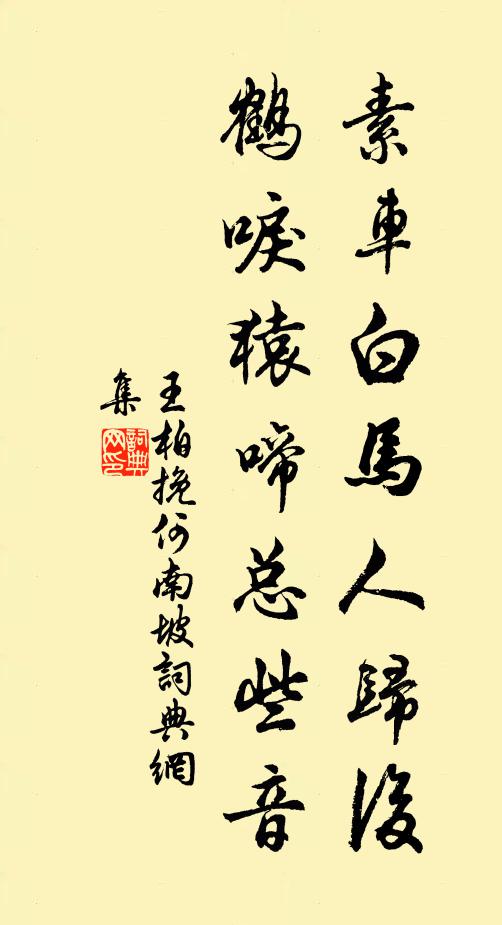 素車白馬人歸後
鶴唳猿啼总些音
王柏挽何南坡詞典網
集
詞典
网印